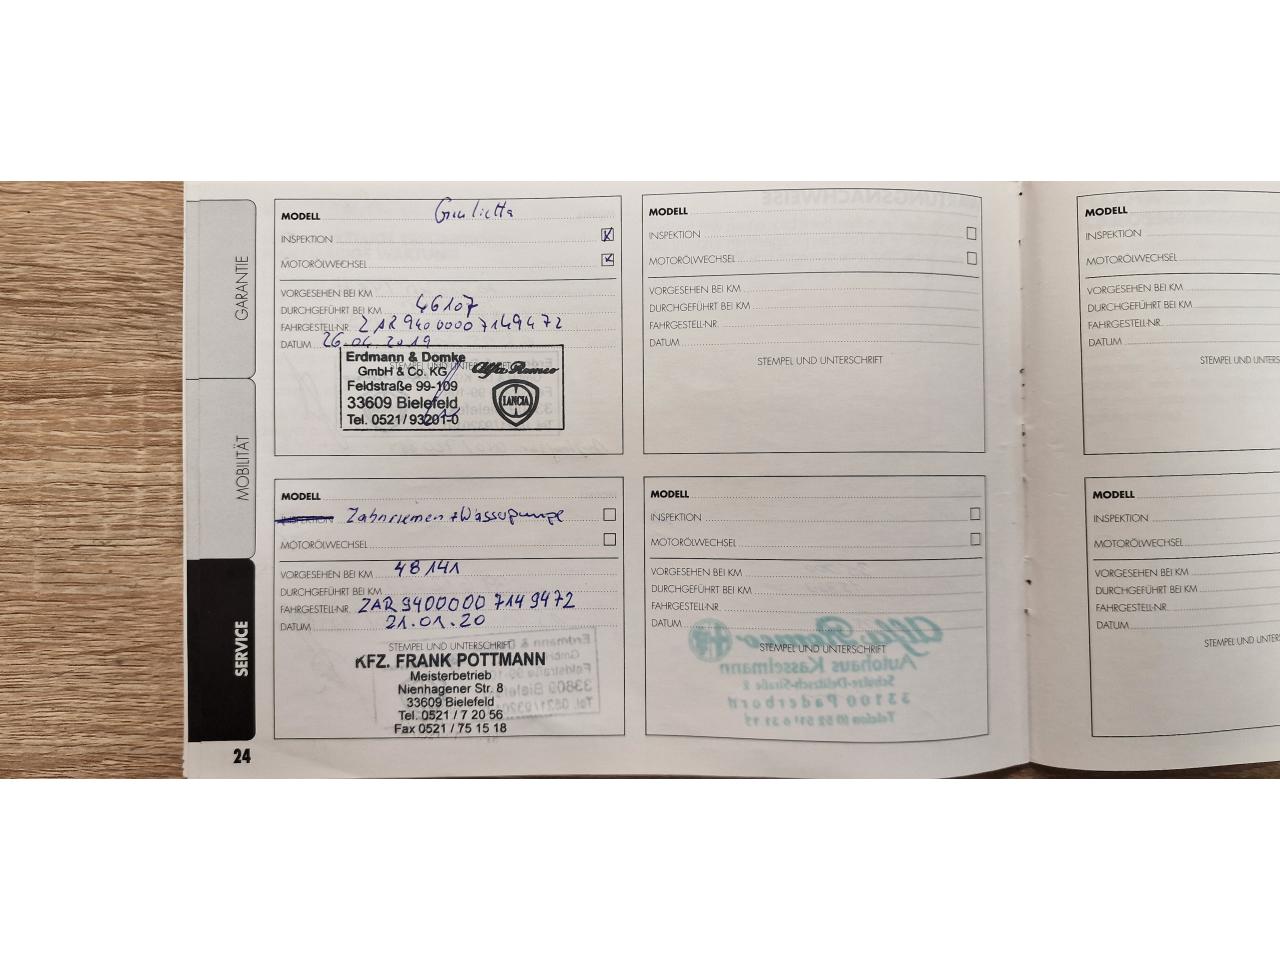 GARANTIE
MOBILITÄT
SERVICE
24
MODELL Giulietta
INSPEKTION
MOTORÖLWECHSEL
VORGESEHEN BEI KM
DURCHGEFÜHRT BEI KM 46107
FAHRGESTELL-NR. ZAR94000007149472
DATUM 26.04.2019
STEMPEL UND UNTERSCHRIFT
Erdmann & Domke
GmbH & Co. KG
Feldstraße 99-109
33609 Bielefeld
Tel. 0521/93201-0
Alfa Romeo
LANCIA
MODELL
INSPEKTION Zahnriemen + Wasserpumpe
MOTORÖLWECHSEL
VORGESEHEN BEI KM 48141
DURCHGEFÜHRT BEI KM
FAHRGESTELL-NR. ZAR9400000 7149472
DATUM 21.01.20
STEMPEL UND UNTERSCHRIFT
KFZ. FRANK POTTMANN
Meisterbetrieb
Nienhagener Str. 8
33609 Bielefeld
Tel. 0521 / 7 20 56
Fax 0521 / 75 15 18
MODELL
INSPEKTION
MOTORÖLWECHSEL
VORGESEHEN BEI KM
DURCHGEFÜHRT BEI KM
FAHRGESTELL-NR.
DATUM
STEMPEL UND UNTERSCHRIFT
MODELL
INSPEKTION
MOTORÖLWECHSEL
VORGESEHEN BEI KM
DURCHGEFÜHRT BEI KM
FAHRGESTELL-NR.
DATUM
STEMPEL UND UNTERSCHRIFT
MODELL
INSPEKTION
MOTORÖLWECHSEL
VORGESEHEN BEI KM
DURCHGEFÜHRT BEI KM
FAHRGESTELL-NR.
DATUM
STEMPEL UND UNTERS
MODELL
INSPEKTION
MOTORÖLWECHSEL
VORGESEHEN BEI KM
DURCHGEFÜHRT BEI KM
FAHRGESTELL-NR.
DATUM
STEMPEL UND UNTERS